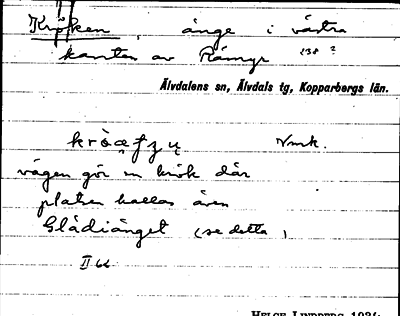 Kröken, änge i västra
kanten av Rämyr 238 ?
Älvdalens sn, Älvdals tg, Kopparbergs län.
Vmk.
vägen gör en krök där
platsen kallas även
Glådiänget (se detta)
II 66
HELGE LINDBERG 1934